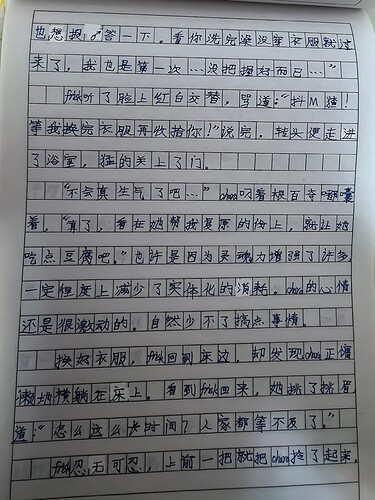 也想报答一下。看你洗完澡没拿衣服就过
来了，我也是第一次…没把握好而已…”
frisk听了脸上红白交替，骂道：“抖M猪！
等我换完衣服再收拾你！”说完，转头便走进
了浴室，猛的关上了门。
“不会真生气了吧…”chara叼着根百奇嘟囔
着，“算了，看在她帮我复原的份上，就让她
吃点豆腐吧。”也许是因为灵魂力增强了许多，
一定程度上减少了实体化的消耗。chara的心情
还是很激动的。自然少不了搞点事情。
换好衣服，frisk回到床边，却发现chara正慵
懒地横躺在床上。看到frisk回来，她挑了挑眉
道：“怎么这么长时间？人家都等不及了。”
frisk忍无可忍，上前一把就把chara拎了起来。